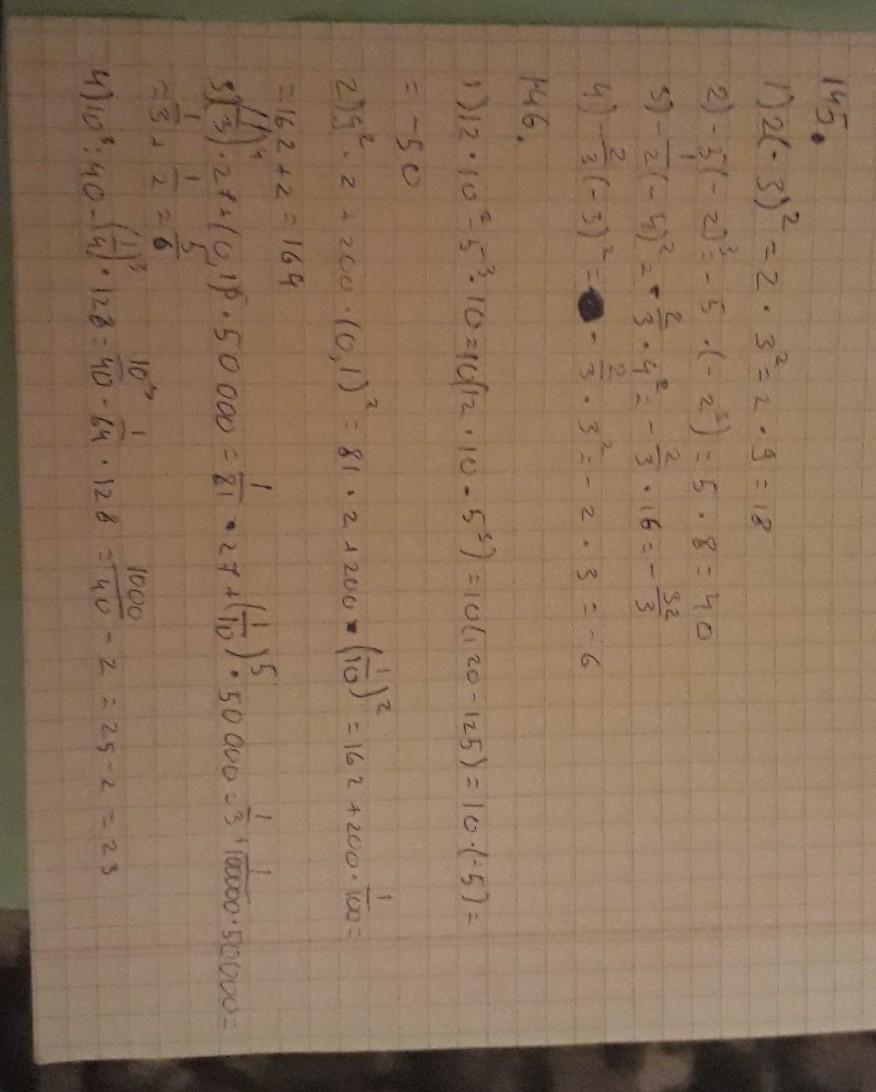 145.
1) 2(-3)² = 2 · 3² = 2 · 9 = 18
2) -5(-2)³ = -5 · (-2³) = 5 · 8 = 40
3) -1/2(-4)² = -2/3 · 4² = -2/3 · 16 = -32/3
4) -2/3(-3)² = -2/3 · 3² = -2 · 3 = -6
146.
1) 12 · 10² - 5³ · 10 = 10(12 · 10 - 5³) = 10(120 - 125) = 10 · (-5) =
= -50
2) 9² · 2 + 200 · (0,1)² = 81 · 2 + 200 · (1/10)² = 162 + 200 · 1/100 =
= 162 + 2 = 164
3) (1/3)⁴ · 27 + (0,1)⁵ · 50 000 = 1/81 · 27 + (1/10)⁵ · 50 000 = 1/3 + 1/100000 · 50000 =
= 1/3 + 1/2 = 5/6
4) 10³ : 40 - (1/4)³ · 128 = 10³/40 - 1/64 · 128 = 1000/40 - 2 = 25 - 2 = 23